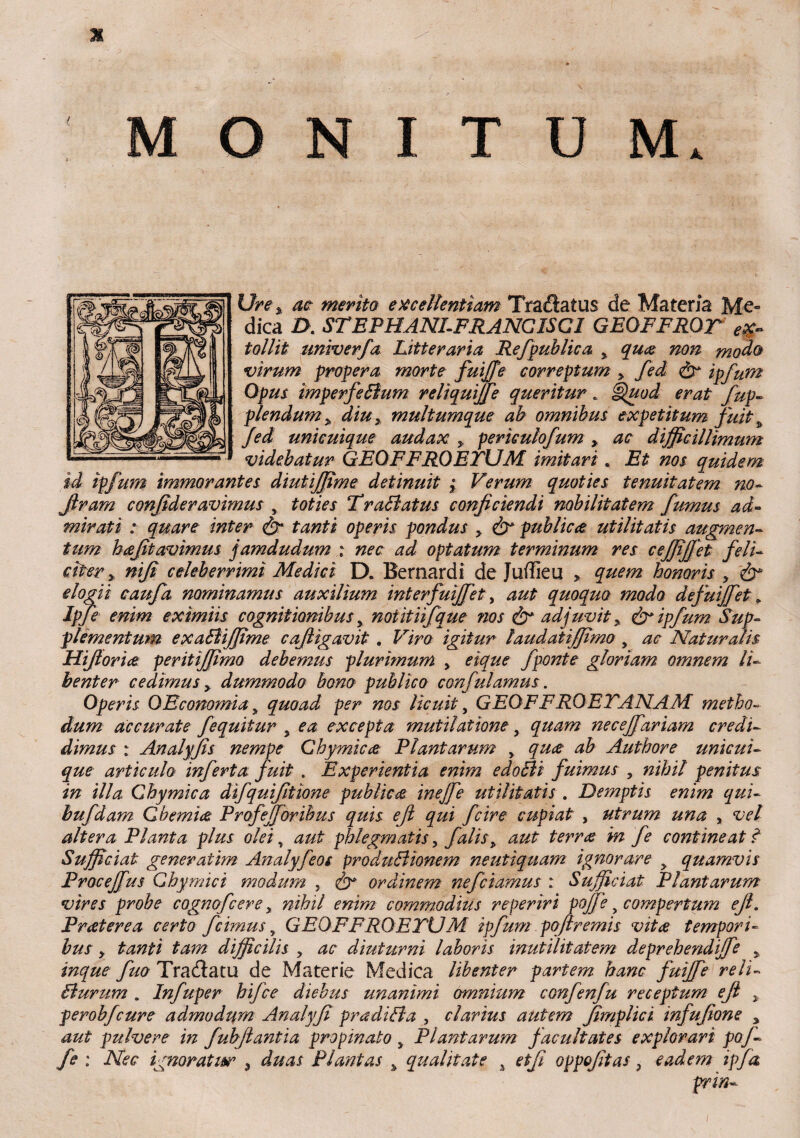 x
MONITUM.
JUre, ac merito excellentiam Tractatus de Materia Me-
dica D. STEPHANI-FRANCISCI GEOFFROY ex-
tollit universa Litteraria Respublica, quæ non modo
virum propera morte fuisse correptum, sed & ipsum
Opus imperfectum reliquisse queritur. Quod erat sup-
plendum, diu, multumque ab omnibus expetitum fuit,
sed unicuique audax, periculosum, ac difficillimum
videbatur GEOFFROEYUM imitari. Et nos quidem
id ipsum immorantes diutissime detinuit; Verum quoties tenuitatem no-
stram consideravimus, toties Tractatus conficiendi nobilitatem sumus ad-
mirati: quare inter & tanti operis pondus, & publicæ utilitatis augmen-
tum hæsitavimus jamdudum: nec ad optatum terminum res cessisset feli-
citer, nisi celeberrimi Medici D. Bernardi de Jussieu, quem honoris, &
elogii causa nominamus auxilium interfuisset, aut quoquo modo defuisset.
Ipse enim eximiis cognitionibus, notitiisque nos & adjuvit, & ipsum Sup-
plementum exactissime castigavit. Viro igitur laudatissimo, ac Naturalis
Historiæ peritissimo debemus plurimum, eique sponte gloriam omnem li-
benter cedimus, dummodo bono publico consulamus.
Operis OEconomia, quoad per nos licuit, GEOFFROEYANAM metho-
dum accurate sequitur, ea excepta mutilatione, quam necessariam credi-
dimus: Analysis nempe Chymicæ Plantarum, quæ ab Authore unicui-
que articulo inserta fuit. Experientia enim edocti fuimus, nihil penitus
in illa Chymica disquisitione publicæ inesse utilitatis. Demptis enim qui-
busdam Chemiæ Professoribus quis est qui scire cupiat, utrum una, vel
altera Planta plus olei, aut phlegmatis, salis, aut terræ in se contineat?
Sufficiat generatim Analyseos productionem neutiquam ignorare, quamvis
Processus Chymici modum, & ordinem nesciamus: Sufficiat Plantarum
vires probe cognoscere, nihil enim commodius reperiri posse, compertum est.
Præterea certo scimus, GEOFFROEYUM ipsum postremis vitæ tempori-
bus, tanti tam difficilis, ac diuturni laboris inutilitatem deprehendisse,
inque suo Tractatu de Materie Medica libenter partem hanc fuisse reli-
cturum. Insuper hisce diebus unanimi omnium consensu receptum est,
perobscure admodum Analysi prædicta, clarius autem simplici infusione,
aut pulvere in substantia propinato, Plantarum facultates explorari pos-
se: Nec ignoratur, duas Plantas, qualitate, etsi oppositas, eadem ipsa
prin-